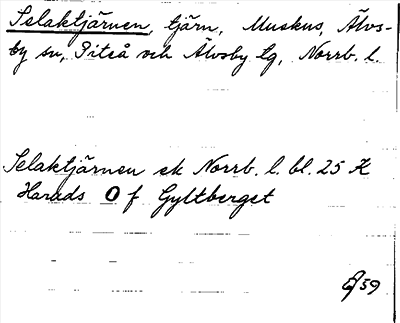 Selaktjärnen, tjärn, Muskus, Älvs-
by sn, Piteå och Älvsby tg, Norrb. l.
Selaktjärnen ek Norrb. l. bl. 25 K
Harads O f Gyltberget
59